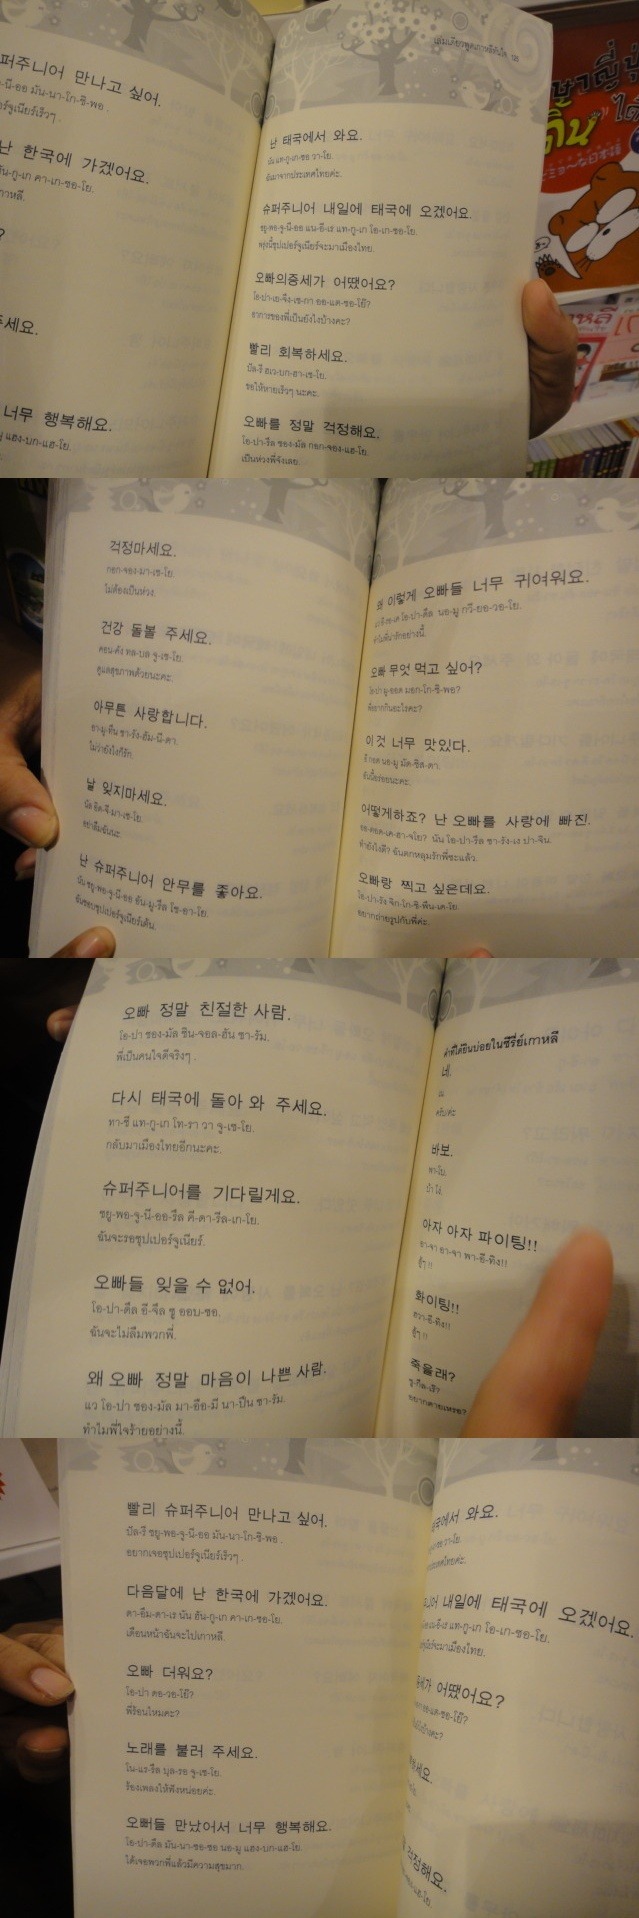 퍼주니어 만나고 싶어.
-นี-ออ มัน-นา-โก-ชิ-พอ .
ร์จูเนียร์เร็วๆ .
난 한국에 가겠어요.
น-กู-เก คา-เก-ซอ-โย.
กาหลี.
?
세요.
너무 행복해요.
แฮง-บก-แฮ-โย.
เล่มเดียวพูดเกาหลีทันใจ
난 태국에서 와요.
นัน แท-กู-เก-ซอ วา-โย.
ฉันมาจากประเทศไทยค่ะ.
슈퍼주니어 내일에 태국에 오겠어요.
ชยู-พอ-จู-นี-ออ แน-อี-เร แท-กู-เก โอ-เก-ซอ-โย.
พรุ่งนี้ซุปเปอร์จูเนียร์จะมาเมืองไทย.
오빠의증세가 어땠어요?
โอ-ปา-เย-จึง-เซ-กา ออ-แต-ซอ-โย๊?
อาการของพี่เป็นยังไงบ้างคะ?
빨리 회복하세요.
ปัล-รี ฮเว-บก-ฮา-เซ-โย.
ขอให้หายเร็วๆ นะคะ.
오빠를 정말 걱정해요.
โอ-ปา-รึล ชอง-มัล กอก-จอง-แฮ-โย.
เป็นห่วงพี่จังเลย.
ษาญี่ปุ่
ได้
걱정마세요.
กอก-จอง-มา-เซ-โย.
ไม่ต้องเป็นห่วง.
건강 돌볼 주세요.
คอน-คัง ทล-บล จู-เซ-โย.
ดูแลสุขภาพด้วยนะคะ.
아무튼 사랑합니다.
อา-มู-ทึน ซา-รัง-ฮัม-นี-ดา.
ไม่ว่ายังไงก็รัก.
날 잊지마세요.
นัล อิด-จี-มา-เซ-โย.
อย่าลืมฉันนะ.
난 슈퍼주니어 안무를 좋아요.
นัน ชยู-พอ-จู-นี-ออ อัน-มู-รึล โช-อา-โย.
ฉันชอบซุปเปอร์จูเนียร์เต้น.
왜 이렇게 오빠들 너무 귀여워요.
แว อี-รอ-เค โอ-ปา-ดึล นอ-มู กวี-ยอ-วอ-โย.
ทำไมพี่น่ารักอย่างนี้.
오빠 무엇 먹고 싶어?
โอ-ปา มู-ออด มอก-โก-ชิ-พอ?
พี่อยากกินอะไรคะ?
이것 너무 맛있다.
อี กอด นอ-มู มัด-ชิส-ดา.
อันนี้อร่อยนะคะ.
어떻게하죠? 난 오빠를 사랑에 빠진.
ออ-ตอด-เค-ฮา-จโย? นัน โอ-ปา-รึล ซา-รัง-เร ปา-จิน.
ทำยังไงดี? ฉันตกหลุมรักพี่ซะแล้ว.
오빠랑 찍고 싶은데요.
โอ-ปา-รัง จิก-โก-ชิ-พึน-เด-โย.
อยากถ่ายรูปกับพี่ค่ะ.
오빠 정말 친절한 사람.
โอ-ปา ชอง-มัล ชิน-จอล-ฮัน ซา-รัม.
พี่เป็นคนใจดีจริงๆ .
다시 태국에 돌아 와 주세요.
ทา-ชี แท-กู-เก โท-รา วา จู-เซ-โย.
กลับมาเมืองไทยอีกนะคะ.
슈퍼주니어를 기다릴게요.
ชยู-พอ-จู-นี-ออ-รึล คี-ดา-รีล-เก-โย.
ฉันจะรอซุปเปอร์จูเนียร์.
오빠들 잊을 수 없어.
โอ-ปา-ดึล อี-จึล ซู ออบ-ซอ.
ฉันจะไม่ลืมพวกพี่.
왜 오빠 정말 마음이 나쁜 사람.
แว โอ-ปา ชอง-มัล มา-อือ-มี นา-ปึน ซา-รัม.
ทำไมพี่ใจร้ายอย่างนี้.
คำที่ได้ยินบ่อยในซีรี่ย์เกาหลี
네.
เน.
ครับ/ค่ะ
바보.
พา-โบ.
บ้า โง่.
아자 아자 파이팅!!
อา-จา อา-จา พา-อี-ทิง!!
สู้ๆ !!
화이팅!!
ฮวา-อี-ทิง!!
สู้ๆ !!
죽을래?
ชู-กึล-เร?
อยากตายเหรอ?
빨리 슈퍼주니어 만나고 싶어.
ปัล-รี ชยู-พอ-จู-นี-ออ มัน-นา-โก-ชิ-พอ .
อยากเจอซุปเปอร์จูเนียร์เร็วๆ .
다음달에 난 한국에 가겠어요.
ดา-อึม-ดา-เร นัน ฮัน-กู-เก คา-เก-ซอ-โย.
เดือนหน้าฉันจะไปเกาหลี.
오빠 더워요?
โอ-ปา ดอ-วอ-โย๊?
พี่ร้อนไหมคะ?
노래를 불러 주세요.
โน-แร-รึล บุล-รอ จู-เซ-โย.
ร้องเพลงให้ฟังหน่อยค่ะ.
오뻐들 만났어서 너무 행복해요.
โอ-ปา-ดึล มัน-นา-ซอ-ซอ นอ-มู แฮง-บก-แฮ-โย.
ได้เจอพวกพี่แล้วมีความสุขมาก.
국에서 와요.
ซอ วา-โย.
ะเทศไทยค่ะ.
니어 내일에 태국에 오겠어요.
แน-อี-เร แท-กู-เก โอ-เก-ซอ-โย.
จูเนียร์จะมาเมืองไทย.
증세가 어땠어요?
ออ-แต-ซอ-โย๊?
ยังไงบ้างคะ?
세요.
걱정해요.